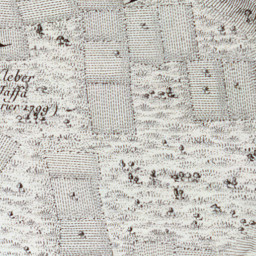 leber
affa
rier 1799)